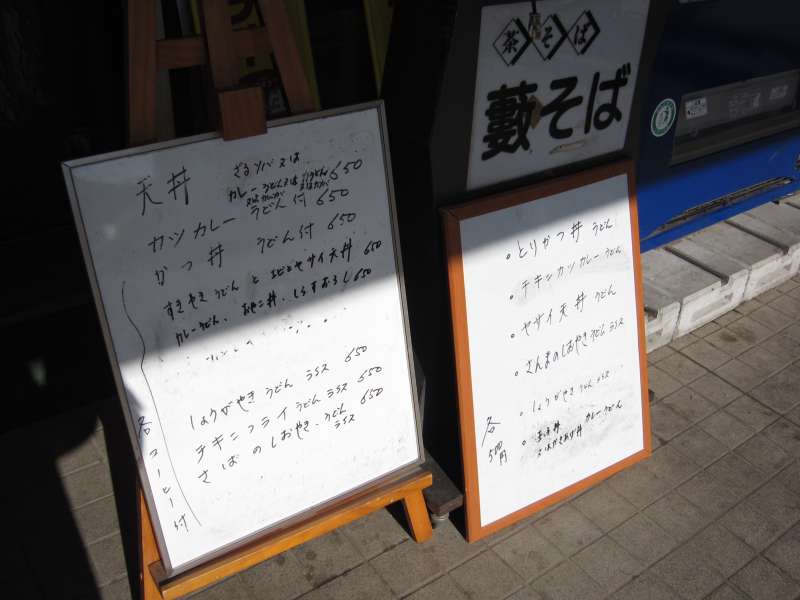 天丼 ざるソバ又は
カレーうどん 650
カツカレー うどん付 650
かつ丼 うどん付 650
すきやきうどん と ヤサイ天丼 650
カレーうどん、 しらすおろし 650
しょうがやき うどん ライス 650
チキンフライ うどん ライス 650
さばのしおやき、うどん ライス 650
各コーヒー付
茶そば
藪そば
とりかつ丼 うどん
チキンカツカレーうどん
ヤサイ天丼 うどん
さんまのしおやき うどん ライス
しょうがやき うどん ライス
カレーうどん
各500円